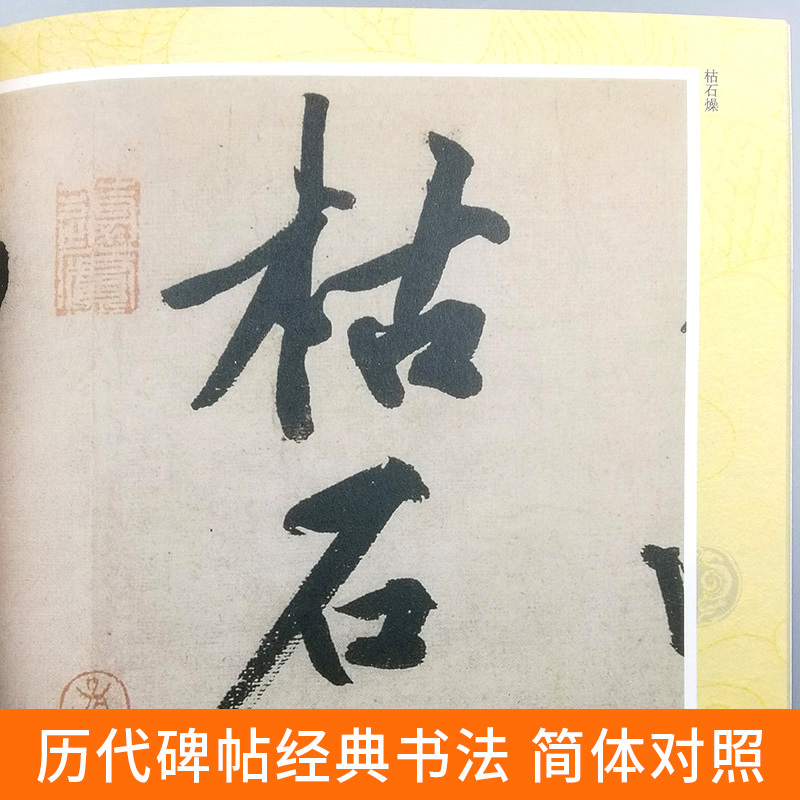 枯石燥
枯
石
历代碑帖经典书法 简体对照